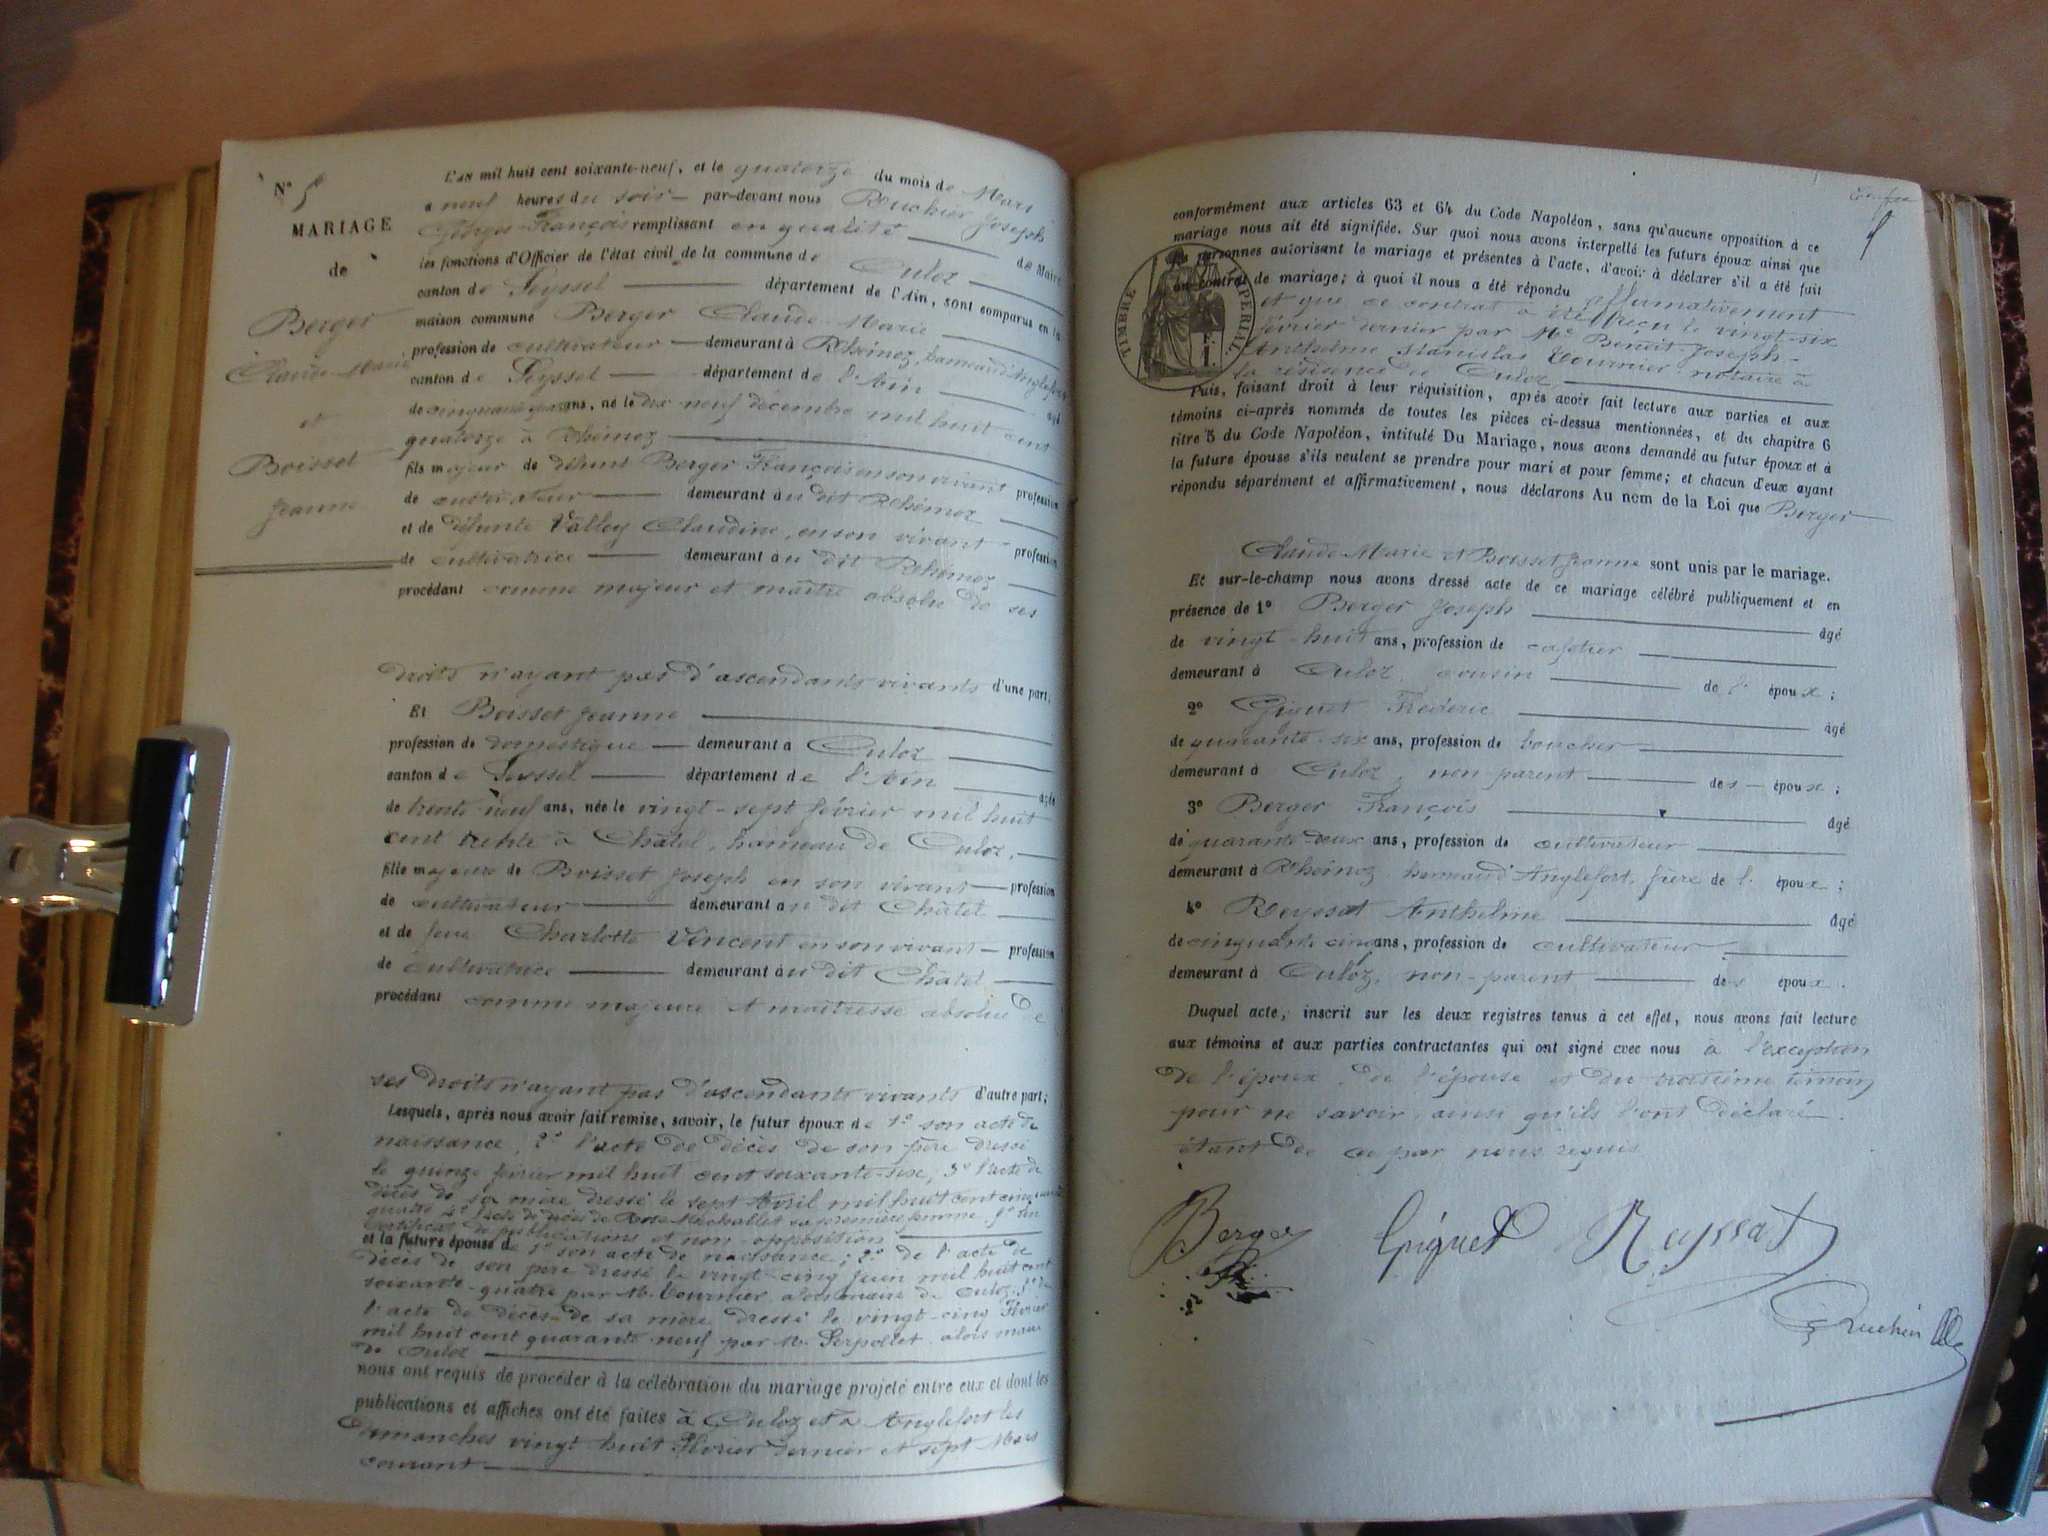 N° 5
MARIAGE
de
Berger
Claude-Marie
et
Boisset
Jeanne
L'AN mil huit cent soixante-neuf, et le quatorze du mois de Mars
a neuf heures du soir par-devant nous Joseph
Georges-François remplissant en qualité de Maire
les fonctions d'Officier de l'état civil de la commune de Culoz
canton de Seyssel département de l'Ain, sont comparus en la
maison commune Berger Claude-Marie
profession de cultivateur demeurant à Rhémoz, hameau d'Anglefort
canton de Seyssel département de l'Ain âgé
de cinquante quatre ans, né le dix neuf décembre mil huit cent
quatorze à Rhémoz
fils majeur de défunt Berger François en son vivant profession
de cultivateur demeurant au dit Rhémoz
et de défunte Valley Claudine, en son vivant profession
de cultivatrice demeurant au dit Rhémoz
procédant comme majeur et maître absolu de ses
droits n'ayant pas d'ascendants vivants d'une part;
Et Boisset Jeanne
profession de domestique demeurant à Culoz
canton de Seyssel département de l'Ain âgée
de trente neuf ans, née le vingt-sept février mil huit
cent trente à Châtel, hameau de Culoz,
fille majeure de Boisset Joseph en son vivant profession
de cultivateur demeurant au dit Châtel
et de feue Charlotte Vincent en son vivant profession
de cultivatrice demeurant au dit Châtel
procédant comme majeure et maîtresse absolue de
ses droits n'ayant pas d'ascendants vivants d'autre part;
Lesquels, après nous avoir fait remise, savoir, le futur époux de 1° son acte de
naissance; 2° l'acte de décès de son père dressé
le quinze février mil huit cent soixante-six; 3° l'acte de
décès de sa mère dressé le sept Avril mil huit cent cinquante
quatre 4° l'acte de décès de sa première femme 5° un
certificat de publications et non-opposition
et la future épouse de 1° son acte de naissance; 2° de l'acte de
décès de son père dressé le vingt-cinq juin mil huit cent
soixante-quatre par M. Tournier, alors maire de Culoz; 3° de
l'acte de décès de sa mère dressé le vingt-cinq Février
mil huit cent quarante neuf par M. Serpollet alors maire
de Culoz
nous ont requis de procéder à la célébration du mariage projeté entre eux et dont les
publications et affiches ont été faites à Culoz et à Anglefort les
dimanches vingt huit Février dernier et sept Mars
courant
conformément aux articles 63 et 64 du Code Napoléon, sans qu'aucune opposition à ce
mariage nous ait été signifiée. Sur quoi nous avons interpellé les futurs époux ainsi que
les personnes autorisant le mariage et présentes à l'acte, d'avoir à déclarer s'il a été fait
un contrat de mariage; à quoi il nous a été répondu affirmativement
et que ce contrat a été reçu le vingt-six
février dernier par Me Benoît-Joseph-
Anthelme Stanislas Tournier notaire à
la résidence de Culoz
TIMBRE IMPERIAL
Puis, faisant droit à leur réquisition, après avoir fait lecture aux parties et aux
témoins ci-après nommés de toutes les pièces ci-dessus mentionnées, et du chapitre 6
titre 5 du Code Napoléon, intitulé Du Mariage, nous avons demandé au futur époux et à
la future épouse s'ils veulent se prendre pour mari et pour femme; et chacun d'eux ayant
répondu séparément et affirmativement, nous déclarons Au nom de la Loi que Berger
Claude-Marie et Boisset Jeanne sont unis par le mariage.
Et sur-le-champ nous avons dressé acte de ce mariage célébré publiquement et en
présence de 1° Berger Joseph âgé
de vingt-huit ans, profession de cafetier
demeurant à Culoz, cousin de l'époux;
2° Giguet Frédéric âgé
de quarante-six ans, profession de boucher
demeurant à Culoz, non-parent des époux;
3° Berger François âgé
de quarante deux ans, profession de cultivateur
demeurant à Rhémoz, hameau d'Anglefort, frère de l'époux;
4° Reyssat Anthelme âgé
de cinquante cinq ans, profession de cultivateur
demeurant à Culoz, non-parent des époux.
Duquel acte, inscrit sur les deux registres tenus à cet effet, nous avons fait lecture
aux témoins et aux parties contractantes qui ont signé avec nous à l'exception
de l'époux, de l'épouse et du troisième témoin
pour ne savoir, ainsi qu'ils l'ont déclaré
étant de ce par nous requis
Berger Giguet Reyssat